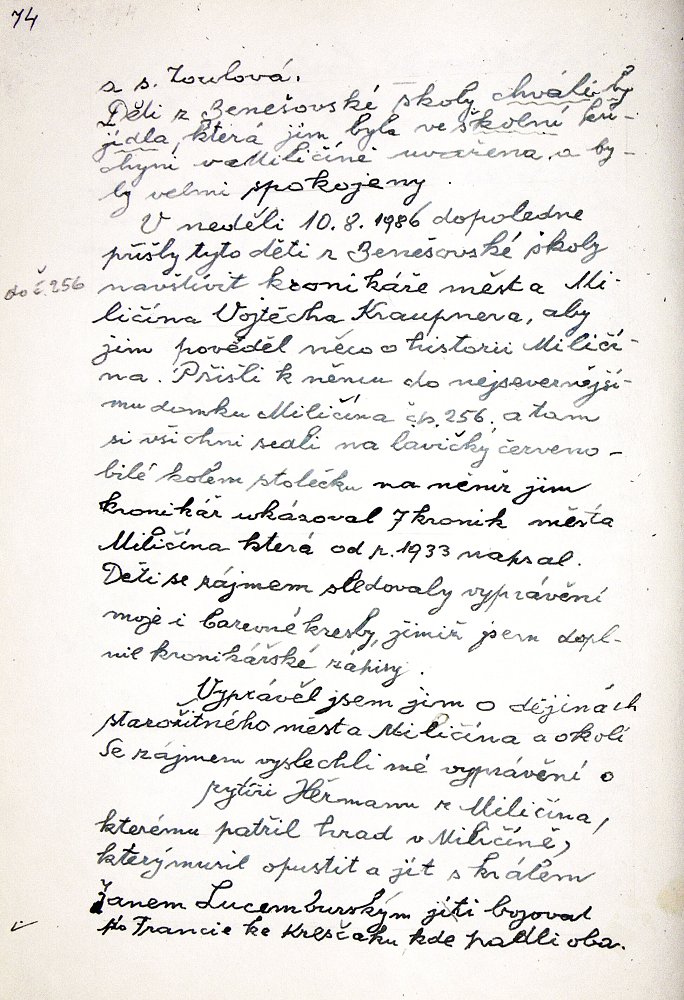 74
a s. Zoulová.
Děti z Benešovské školy chválily
jídla, která jim byla ve školní ku-
chyni v Miličíně uvařena, a by-
ly velmi spokojeny.
V neděli 10.8.1986 dopoledne
přišly tyto děti z Benešovské školy
do č. 256
navštívit kronikáře města Mi-
ličína Vojtěcha Kraupnera, aby
jim pověděl něco o historii Miličí-
na. Přišli k němu do nejsevernější-
mu domku Miličína čp. 256. a tam
si všichni sedli na lavičky červeno-
bílé kolem stolečku na němž jim
kronikář ukázoval 7 kronik města
Miličína která od r. 1933 napsal.
Děti se zájmem sledovaly vyprávění
moje i barevné kresby, jimiž jsem dopl-
nil kronikářské zápisy.
Vyprávěl jsem jim o dějinách
starožitného města Miličína a okolí
Se zájmem vyslechli mé vyprávění o
rytíři Heřmanu z Miličína,
kterému patřil hrad v Miličíně,
který musil opustit a jít s králem
Janem Lucemburským jíti bojovat
do Francie ke Kreščaku kde padli oba.